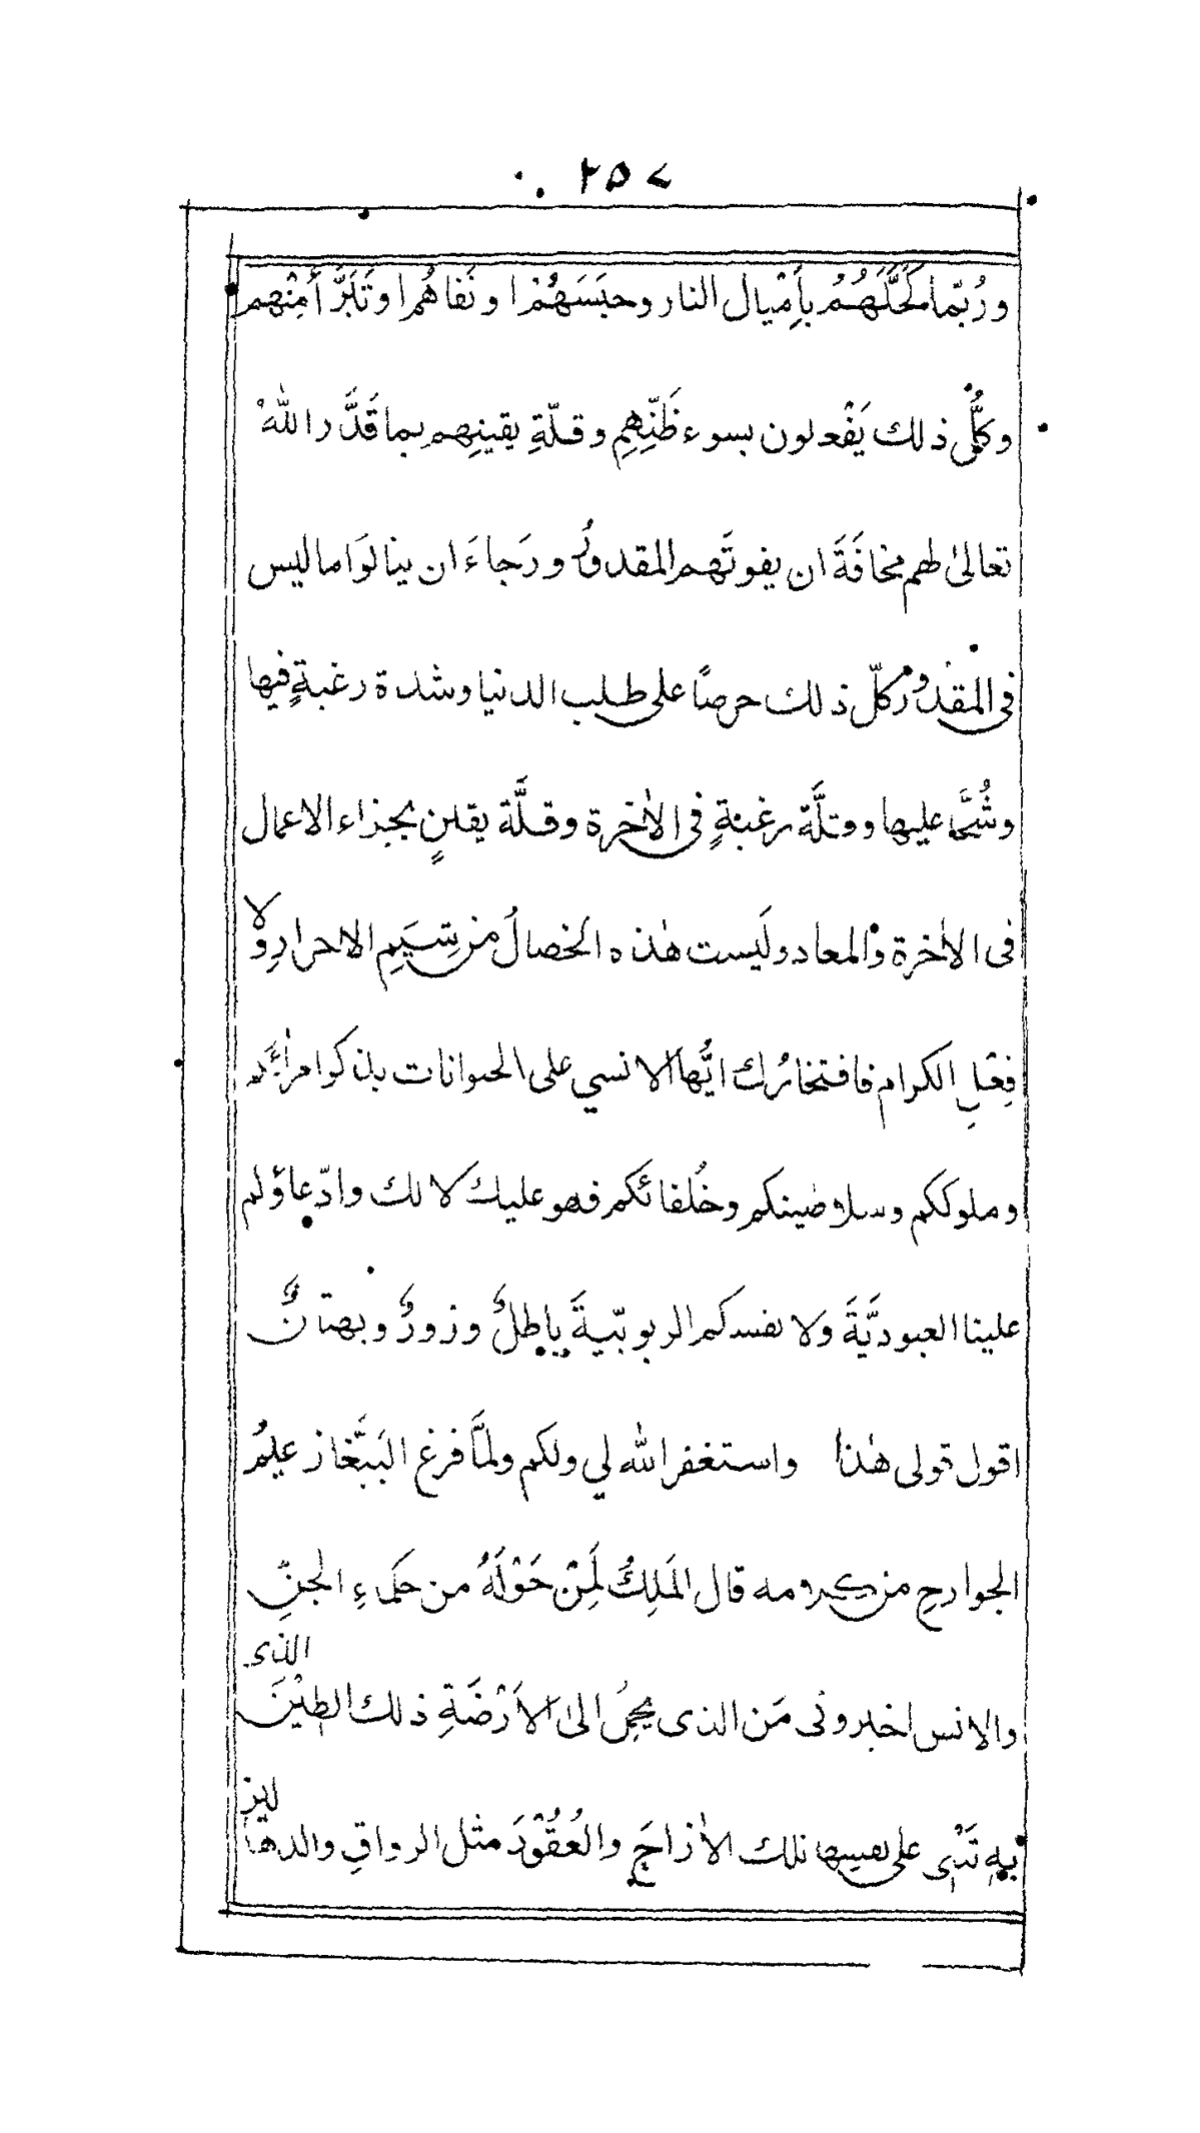 ٢٥٧
وَرُبّما كَحَّلَهُمْ بأِمْيال النار وحبَسَهُمْ او نَفاهُم او تَبَرَّأ مِنْهم
وكلُّ ذلك يَفْعلون بسوء ظَنِّهِم وقلّةِ يقينِهم بما قَدَّر اللّٰهُ
تعالىٰ لهم مخافَةَ ان يفوتَهم المقدورُ ورَجاءَ ان ينالوَا ما ليس
فى المقدُور وكلّ ذلك حرصًا على طلب الدنيا وشدة رغبةٍ فيها
وشُحًّا عليها وقلَّة رغبةٍ فى الاٰخرة وقلَّة يقينٍ بجزاء الاعمال
فى الاٰخرة والمعاد ولَيست هٰذه الخصالُ من شِيَمِ الاحرارِ ولا
فِعْلِ الكرام فافتخارُك ايُّها الانسي على الحيوانات بذكر امرائكم
وملوككم وسلاطينكم وخُلفائكم فهو عليك لا لك وادّعاؤكم
علينا العبوديَّةَ ولا نفسكم الربوبّيةَ باطِلٌ وزورٌ وبهتانٌ
اقول قولى هٰذا واستغفر اللّٰه لي ولكم ولمَّا فرغ البَبَّغا زعيمُ
الجوارحِ من كلامه قال المَلِكُ لَمِنْ حَوْلَهُ من حكَماءِ الجنِّ
والانس اخبرونى مَن الذى يحمِلُ الىٰ الاَرْضَةِ ذلك الطيْنَ الذى
بِهِ تَبْنى على نفسِها تلك الاٰزاجَ والعُقُوْدَ مثل الرواقِ والدهاليز